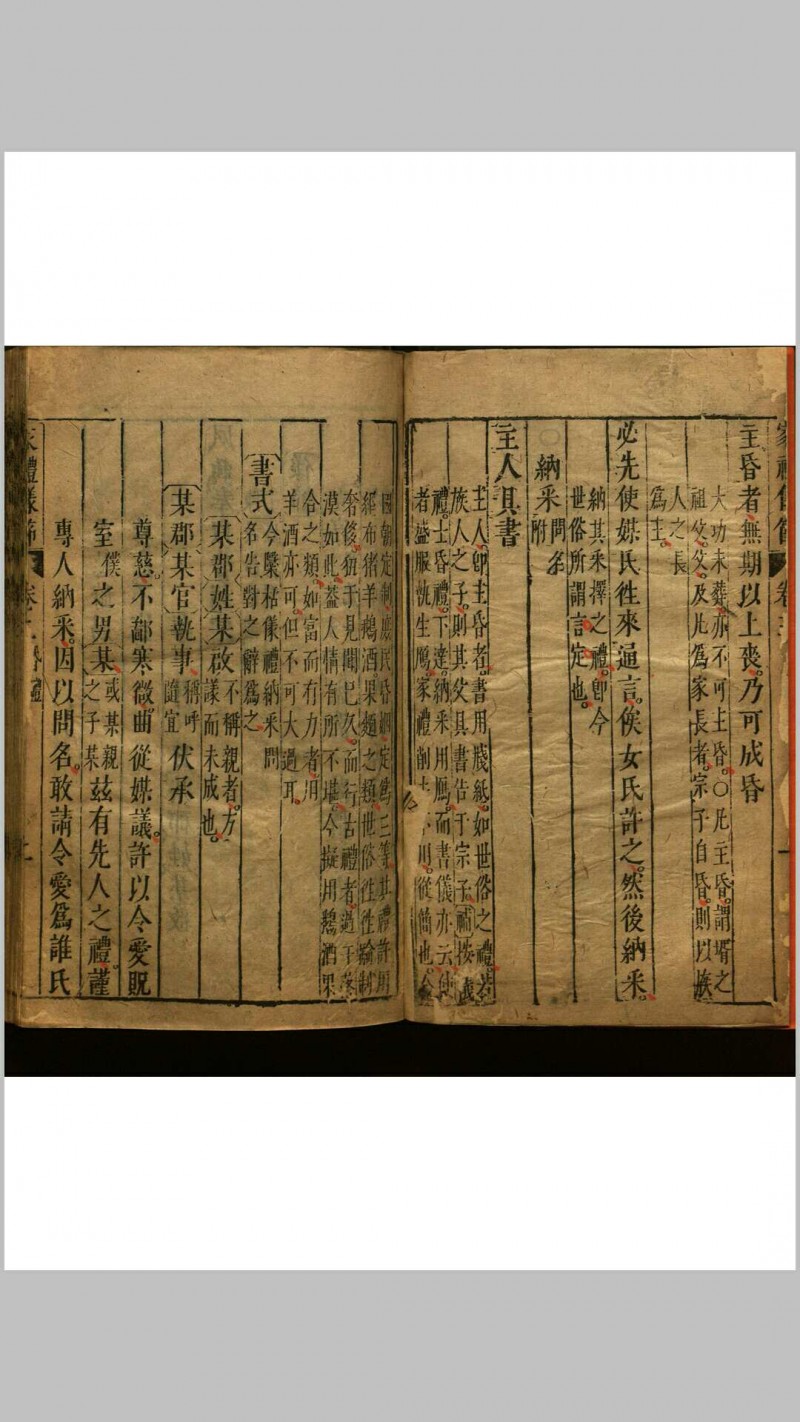 家禮儀節
主昏者無期以上喪。乃可成昏
大功未葬。亦不可主昏。○凡主昏。謂壻之
祖父。父。及凡為家長者。宗子自昏。則以族
人之長
為主。
必先使媒氏往來通言。俟女氏許之。然後納采。
納其采擇之禮。即今
世俗所謂言定也。
納采問名附
主人具書
主人。即主昏者。書用牋紙。如世俗之禮。若
族人之子。則其父具書告于宗子。補按
禮。士昏禮。下達。納采用鴈。而書儀亦云使
者盛服執生鴈。家禮削 用。從簡也。今
國朝定制。庶民昏姻。定為三等。其禮許用
羅布猪羊鵝酒果麵之類。世俗往往踰制
奢侈。狃于見聞已久。而行古禮者。過于落
漠如此。葢人情有所不堪。今擬用鵝酒果
合之類。如富而有力者。用
羊酒亦可。但不可大過耳。
書式
今檃栝儀禮納采問
名告對之辭為之。
某郡姓某啟不稱親者。方
議而未成也。
某郡某官執事稱呼
隨宜伏承
尊慈。不鄙寒微。曲從媒議。許以令愛貺
室僕之男某。或某親
之子某茲有先人之禮。謹
專人納采。因以問名。敢請令愛為誰氏
家禮儀節 卷三 昏禮